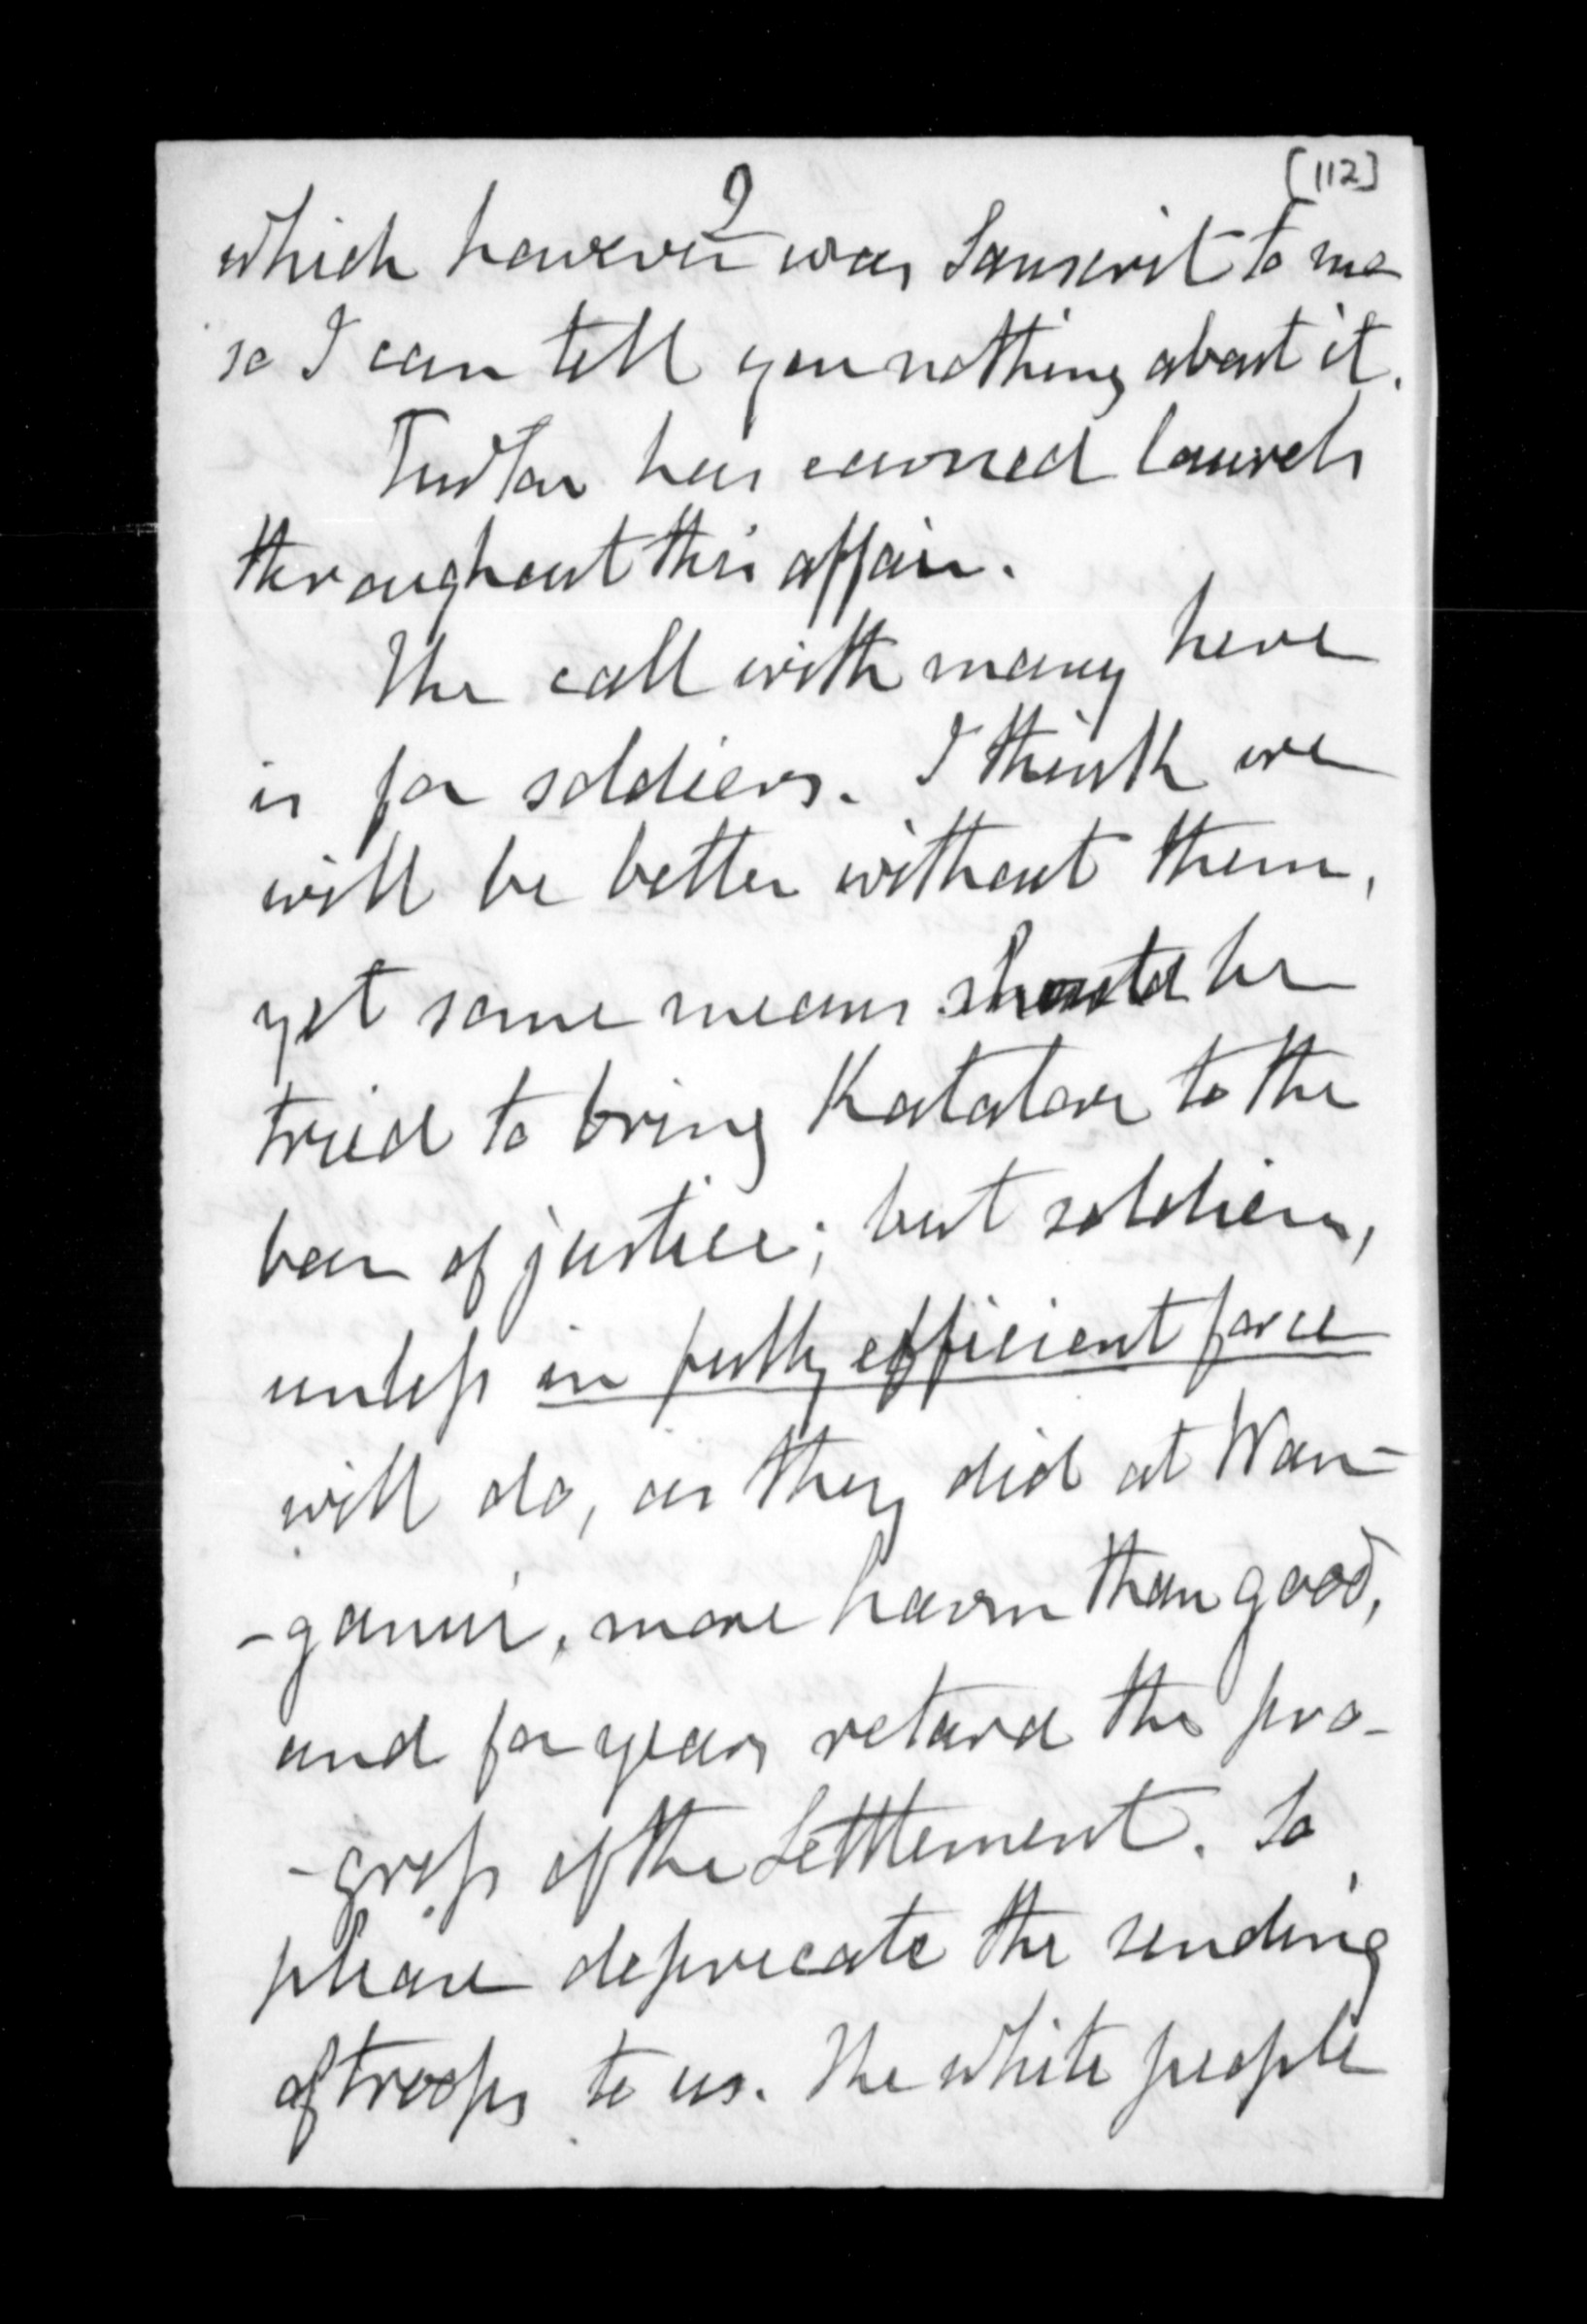 [112]
9
which however was Sanscrit to me
so I can tell you nothing about it.
has earned laurels
throughout this affair.
The call with many here
is for soldiers. I think we
will be better without them,
yet some means should be
tried to bring Katatore to the
bar of justice; but soldiers,
unless in fully efficient force
will do, as they did at Wan-
-ganui, more harm than good,
and for years retard the pro-
-gress of the Settlement. So
please deprecate the sending
of troops to us. The white people